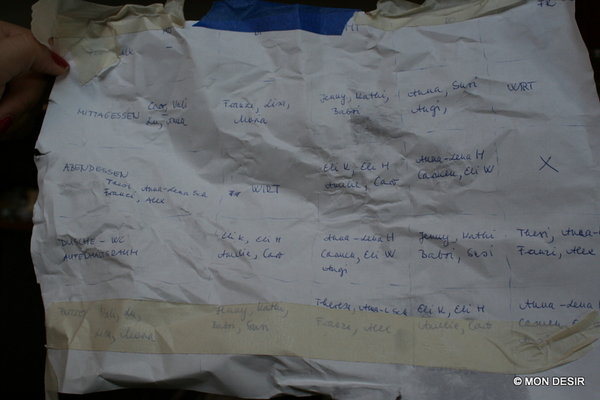 FR
MITTAGESSEN
Caro, Veli
Franzi, Lisa,
Mona
Jenny, Kathi,
Babsi
Anna, Susi
Angi,
WIRT
ABENDESSEN
Theri, Anna-Lena
Franzi, Alex
WIRT
Eli K, Eli H
Amelie, Caro
Anna-Lena H
Carmen, Eli W
X
DUSCHE - WC
AUFENTHSRAUM
Eli K, Eli H
Amelie, Caro
Anna-Lena H
Carmen, Eli W
Angi
Jenny, Kathi
Babsi, Susi
Theri, Anna-
Franzi, Alex
Lisa, Mona
Jenny, Kathi,
Babsi, Susi
Theresa, Anna-L
Franzi, Alex
Eli K, Eli H
Amelie, Caro
Anna-Lena H
Carmen, E
© MON DESIR